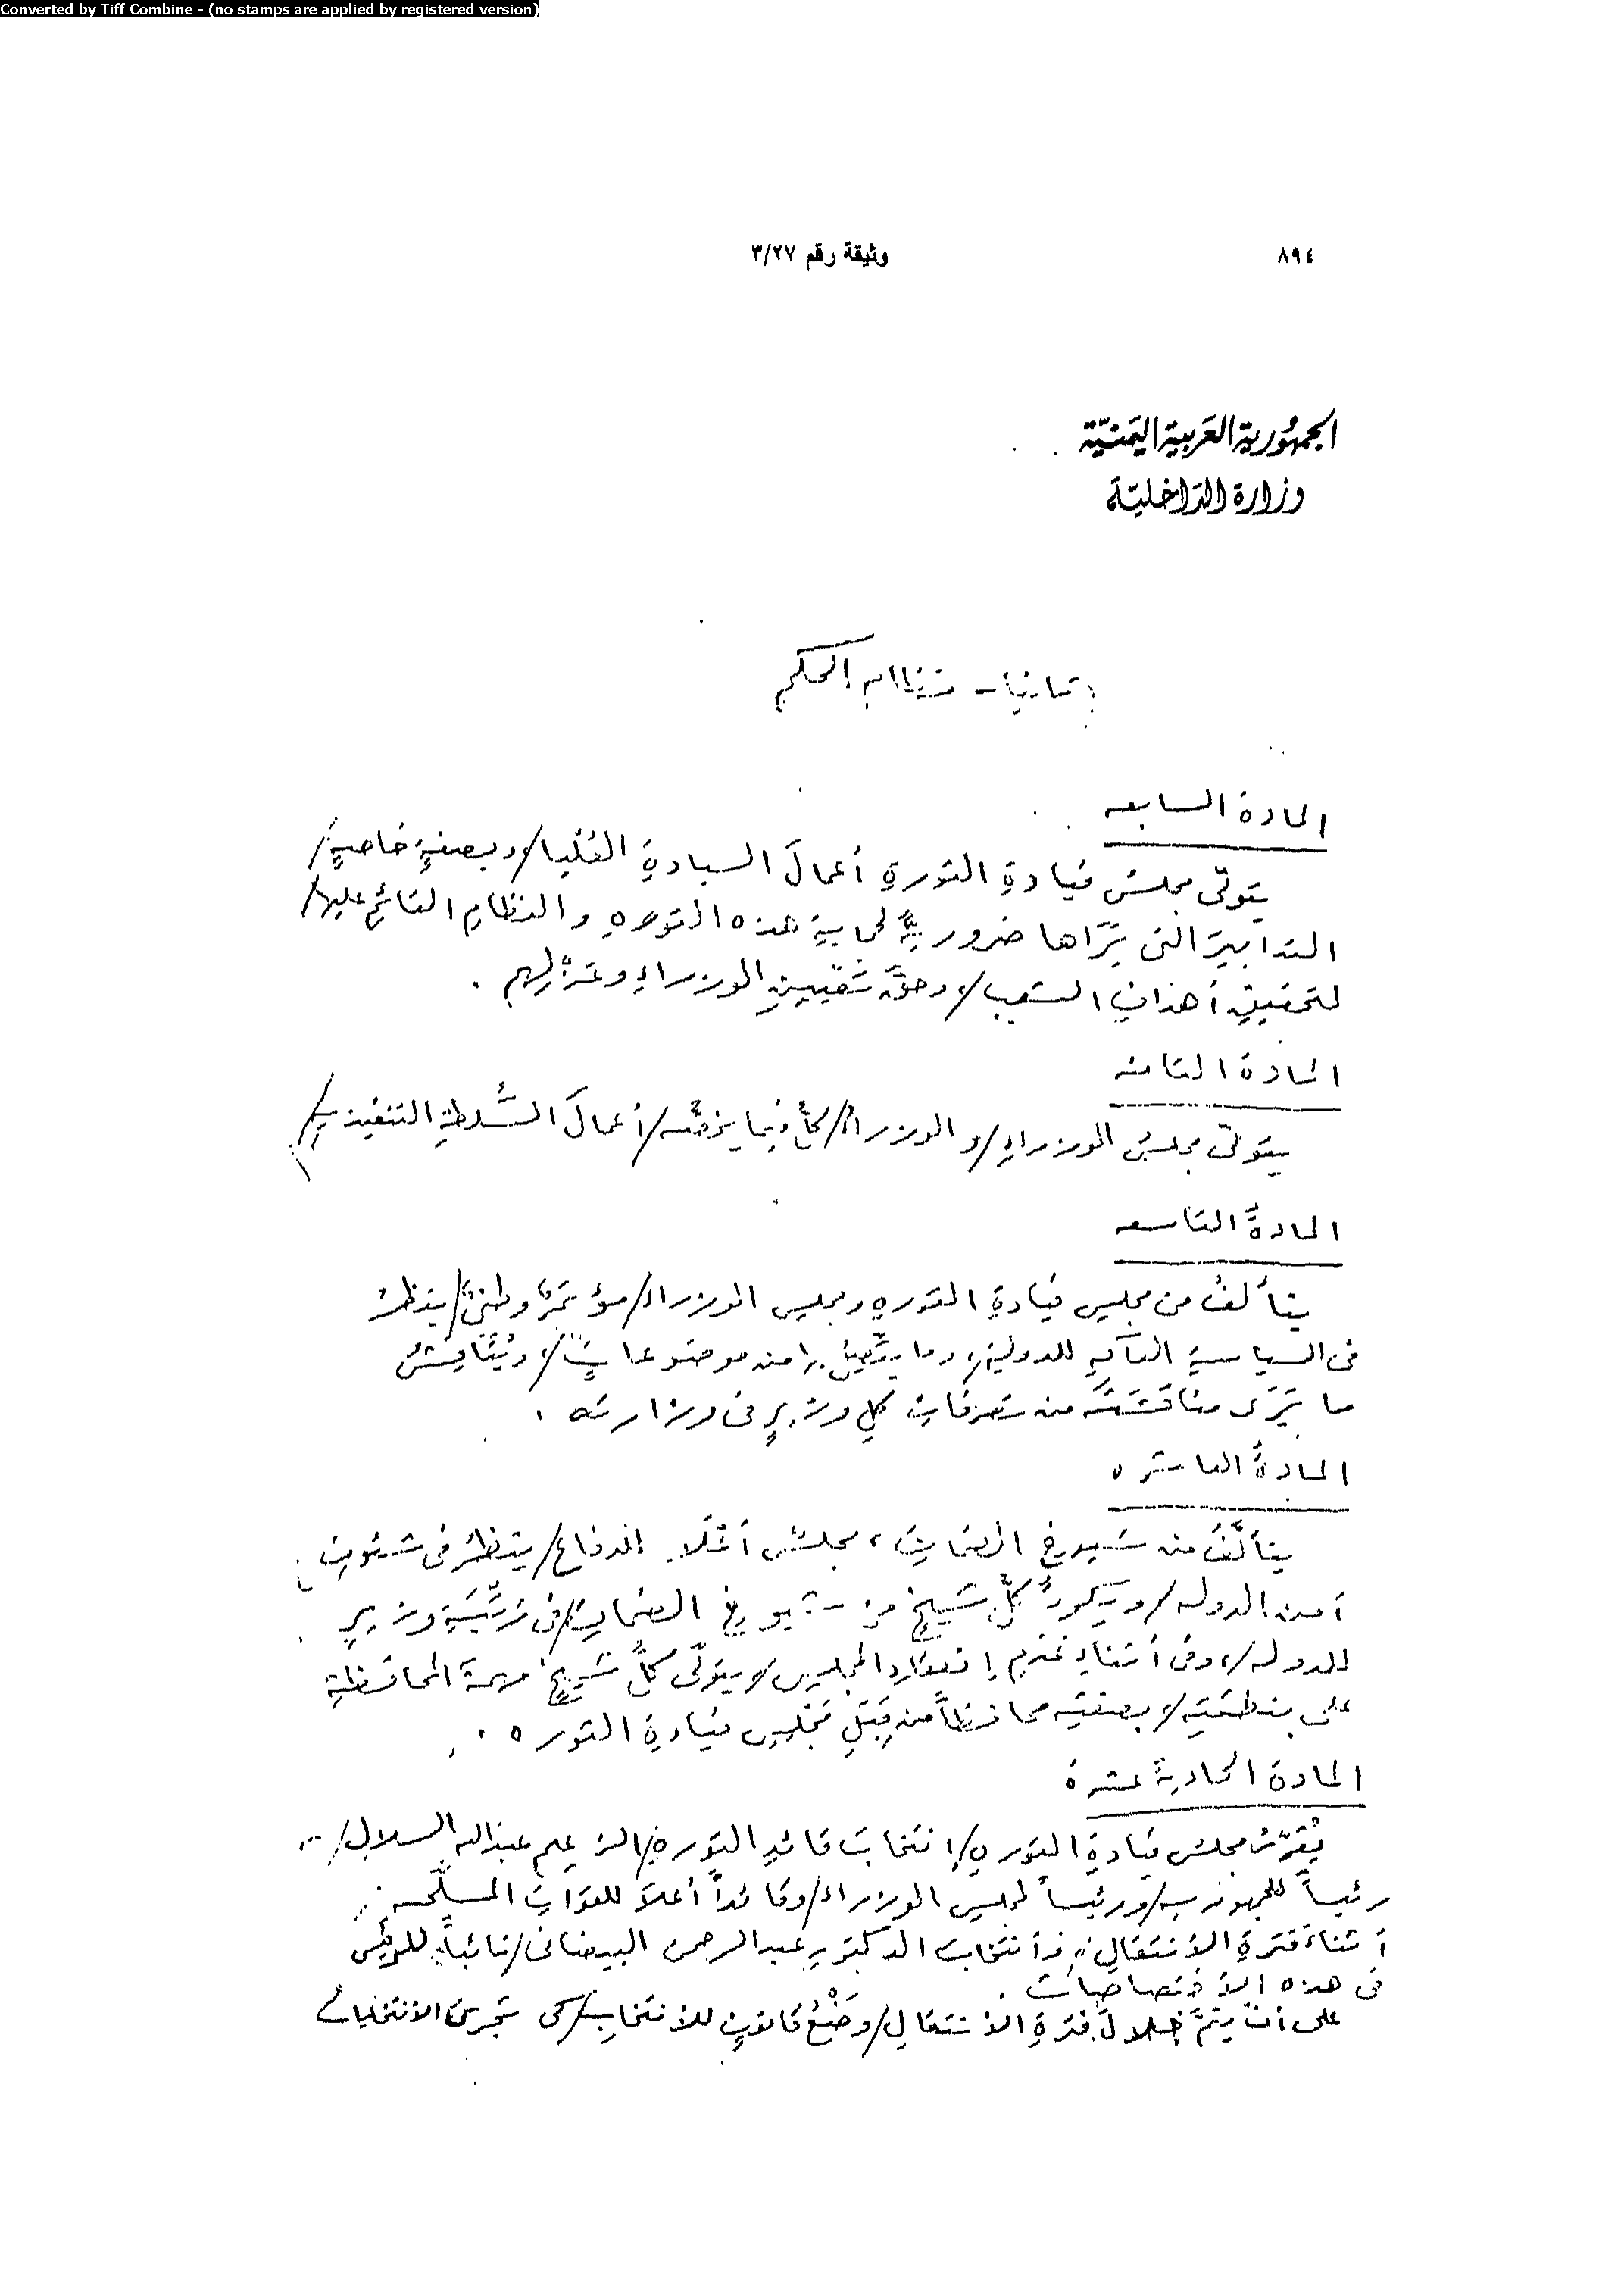 Converted by Tiff Combine - (no stamps are applied by registered version)
٨٩٤
وثيقة رقم ٣/٢٧
الجمهُورية العَربية اليَمنيّة
وزارة الدّاخليّة
ثانيا - نظام الحكم
المادة السابعه
يتولّى مجلسُ قيادةِ الثورةِ أعمالَ السيادةِ العُليا/، وبصفةٍ خاصةٍ/
التدابيرَ التى يَرَاها ضروريةً لحمايةِ هذه الثورهِ والنظامِ القائمِ عليها/
لتحقيقِ أهدافِ الشعبِ/، وحقَّ تَعْيينِ الوزراءِ وعَزْلِهم .
المادة الثامنه
يتولّى مجلسُ الوزراءِ/ والوزراءُ/ كلٌّ فيما يخصُّه/ أعمالَ السُّلطةِ التنفيذيةِ/
المادةُ التاسعه
يتألفُ من مجلسِ قيادةِ الثورهِ ومجلسِ الوزراء/ مؤتمرٌ وطنىٌ/ ينظرُ
فى السياسةِ العآمهِ للدولةِ، وما يتّصلُ بها من موضوعاتٍ/، ويُنَاقِشُ
ما يَرَى مناقشتَه من تصرفاتِ كلِ وزيرٍ فى وزارته .
المادةُ العاشره
يتألَّفُ من شيوخِ الضمانِ ، مجلسٌ أعْلَا للدفاع/ ينظرُ فى شئونِ
أمن الدوله/ ويكونُ كلُّ شيخٍ من شيوخِ الضمانِ/ فى مرْتَبَةِ وزيرٍ
للدوله/، وفى أثناءِ عدمِ إنعقادِ المجلسِ/ يتولّى كلُّ شَيخٍ مهمةَ المحافظةِ
على منطقتِه/ بصفتِه محافظاً من قِبَلِ مَجْلِسِ قيادةِ الثوره .
المادة الحاديةَ عشرةَ
يُقرّرُ مجلسُ قيادةِ الثورهِ/ إنتخابَ قائدِ الثورةِ/ الزعيم عبدالله السلال/
رئيساً للجمهوريه/ ورئيساً لمجلسِ الوزراء/ وقائداً أعلاَ للقواتِ المسلّحه
أثناءَ فترةِ الأنتقالِ، وأنتخابَ الدكتورِ عبدالرحمن البيضانى/ نائباً للرئيسِ
فى هذه الأختصاصات .
على أنْ يتمَّ خلالَ فترةِ الأنتقالِ/ وضْعُ قانونٍ للأنتخابِ/ كى تجرىَ الأنتخابات